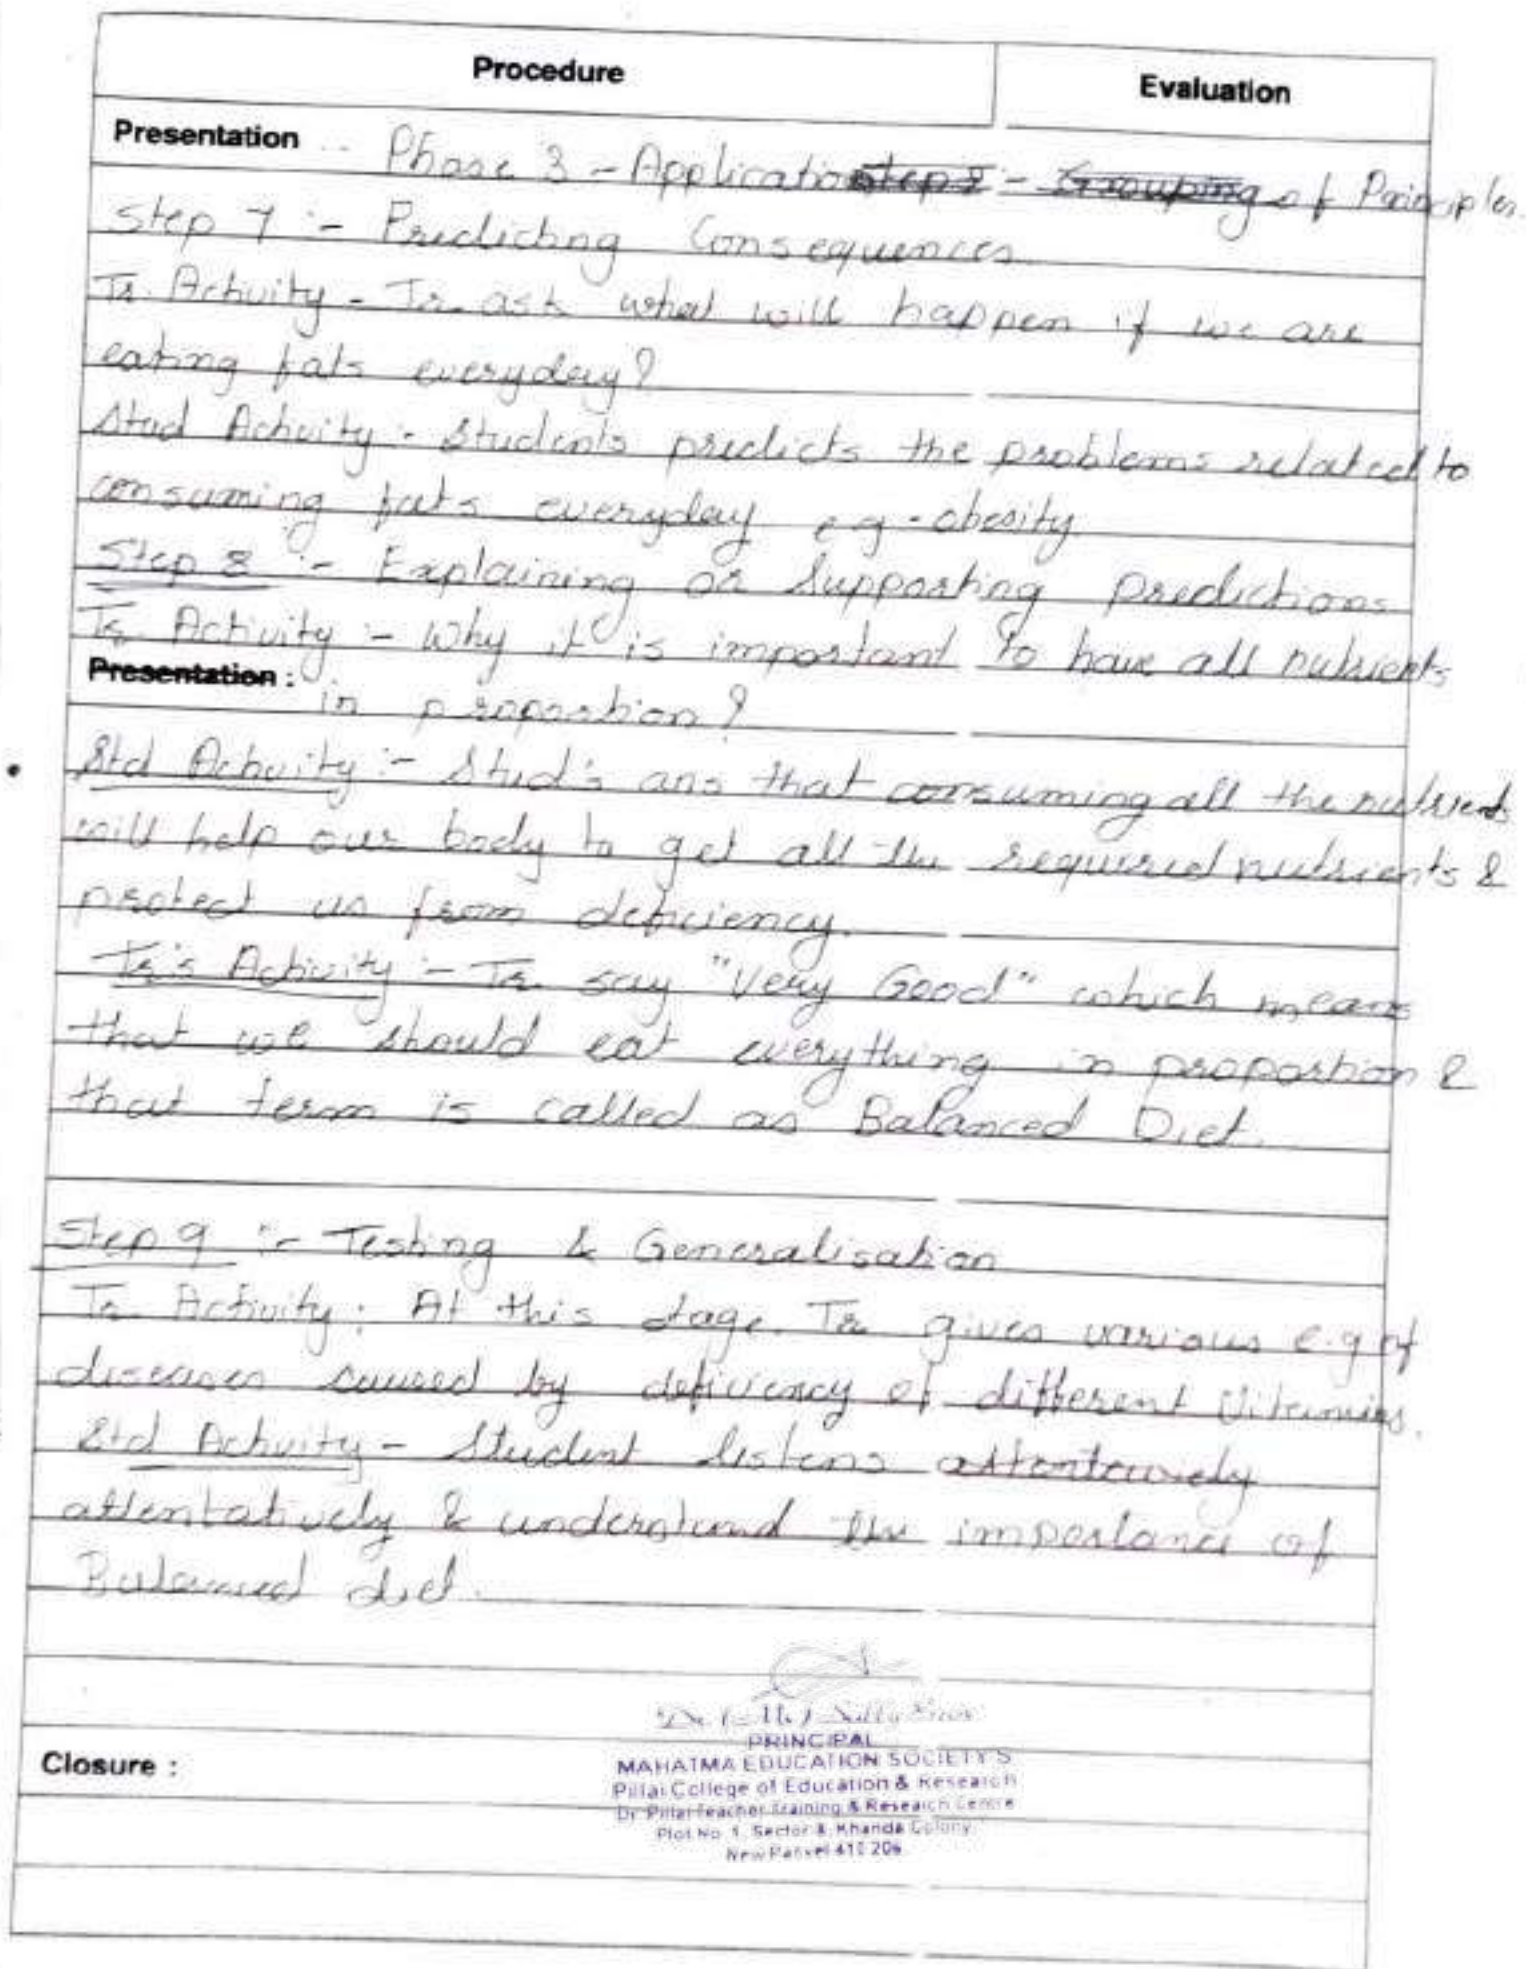 Procedure
Evaluation
Presentation
Phase 3 - Application step 2 - Grouping of Principles.
Step 7 :- Predicting Consequences
Tr. Activity - Tr. ask what will happen if we are
eating fats everyday?
Stud Activity :- Students predicts the problems related to
consuming fats everyday e.g - obesity
Step 8 :- Explaining or Supporting Predictions
Tr. Activity :- Why it is important to have all nutrients
Presentation :
in proportion?
Std Activity :- Stud's ans that consuming all the nutrients
will help our body to get all the required nutrients &
protect us from deficiency.
Tr's Activity :- Tr. say "Very Good" which means
that we should eat everything in proportion &
that term is called as Balanced Diet.
Step 9 :- Testing & Generalisation
Tr. Activity : At this stage. Tr gives various e.g of
diseases caused by deficiency of different Vitamins.
Std Activity - Student listens
attentatively & understand the importance of
Balanced diet.
PRINCIPAL
MAHATMA EDUCATION SOCIETY'S
Pillai College of Education & Research
Dr. Pillai Teacher Training & Research Centre
Plot No. 1, Sector 8, Khanda Colony,
New Panvel 410 206
Closure :